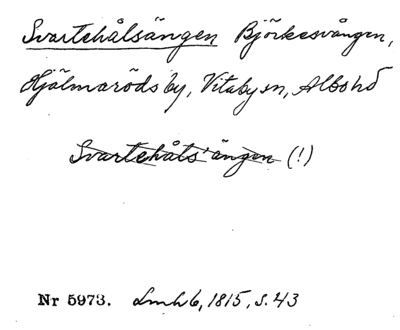 Svartehålsängen Björkesvången,
Hjälmaröds by, Vitaby sn, Albo hd
Svartehåls'ängen (!)
Nr 5973. Lmh 6, 1815, s. 43